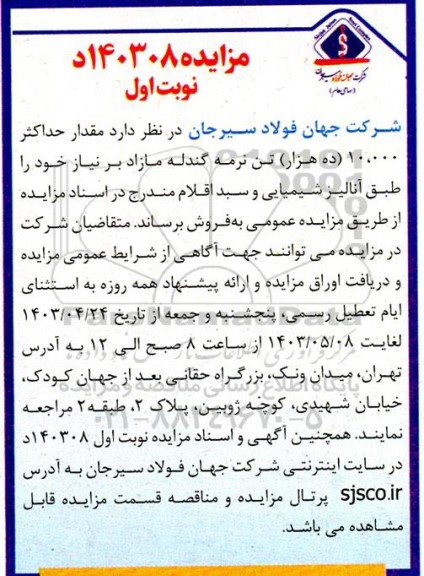 شرکت جهان فولاد سیرجان
(سهامی عام)
مزایده ۱۴۰۳۰۸د
نوبت اول
شرکت جهان فولاد سیرجان در نظر دارد مقدار حداکثر
۱۰.۰۰۰ (ده هزار) تن نرمه گندله مازاد بر نیاز خود را
طبق آنالیز شیمیایی و سبد اقلام مندرج در اسناد مزایده
از طریق مزایده عمومی به‌فروش برساند. متقاضیان شرکت
در مزایده می توانند جهت آگاهی از شرایط عمومی مزایده
و دریافت اوراق مزایده و ارائه پیشنهاد همه روزه به استثنای
ایام تعطیل رسمی، پنجشنبه و جمعه از تاریخ ۱۴۰۳/۰۴/۲۴
لغایت ۱۴۰۳/۰۵/۰۸ از ساعت ۸ صبح الی ۱۲ به آدرس
تهران، میدان ونک، بزرگراه حقانی بعد از جهان کودک،
خیابان شهیدی، کوچه ژوبین، پلاک ۲، طبقه۲ مراجعه
نمایند. همچنین آگهی و اسناد مزایده نوبت اول ۱۴۰۳۰۸د
در سایت اینترنتی شرکت جهان فولاد سیرجان به آدرس
sjsco.ir پرتال مزایده و مناقصه قسمت مزایده قابل
مشاهده می باشد.